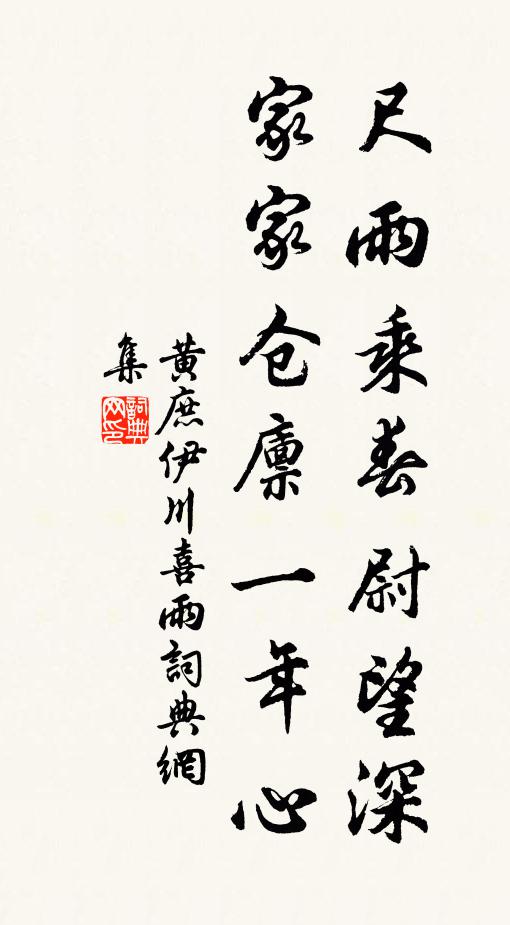 尺雨乘春尉望深
家家仓廪一年心
黄庶伊川喜雨詞典網
集
詞典网印